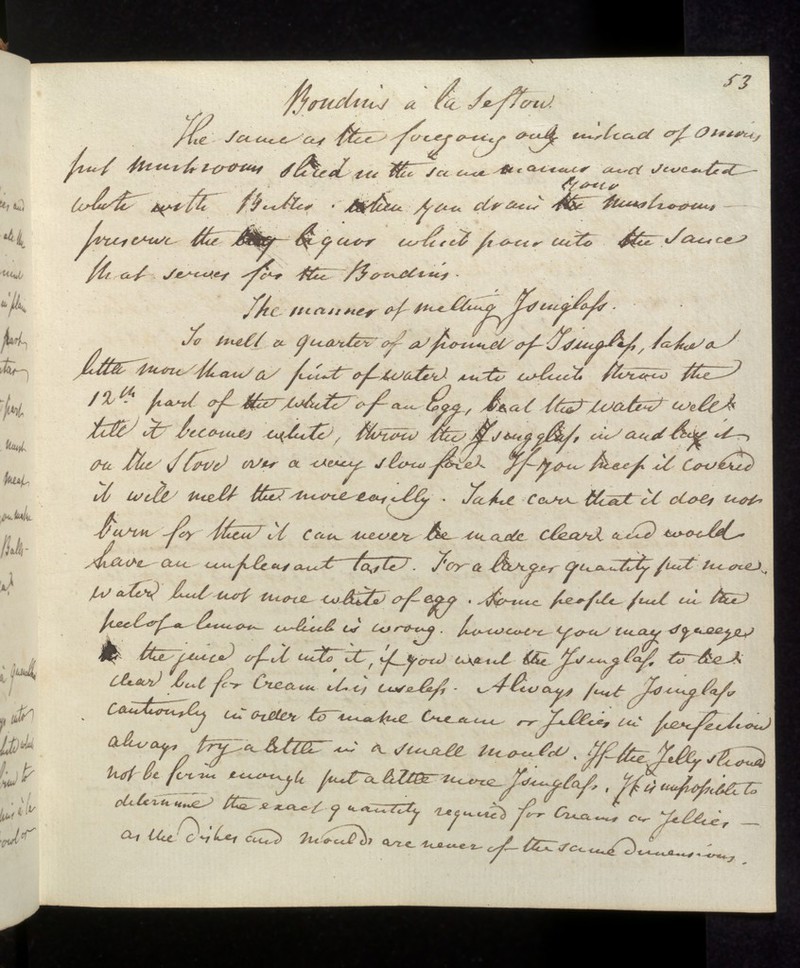 53
Boudins à la Sefton
The same as the foregoing only instead of onions
put mushrooms sliced in the same manner and sweated
white with Butter. when you drain the your mushrooms —
preserve the liquor which pour into the Sauce
that serves for the Boudins.
The manner of melting Isinglass.
To melt a quarter of a pound of Isinglass, take a
little more than a pint of water into which throw the
12th part of the white of an Egg, beat the water well
till it becomes white, throw the Isingglass in and lay it
on the Stove over a very slow fire. If you keep it covered
it will melt the more easilly. Take care that it does not
burn for then it can never be made clear and would
have an unpleasant taste. For a larger quantity put more
water but not more white of egg. Some people put in the
peel of a lemon which is wrong. however you may squeeze
the juice of it into it, if you want the Isinglass to be
clear but for Cream it is useless. Always put Isinglass
cautiously in order to make Cream or Jellies in perfection
always try a little in a small mould. If the Jelly should
not be firm enough put a little more Isinglass. It is impossible to
determine the exact quantity required for Creams or Jellies —
as the dishes and moulds are never of the same dimensions.